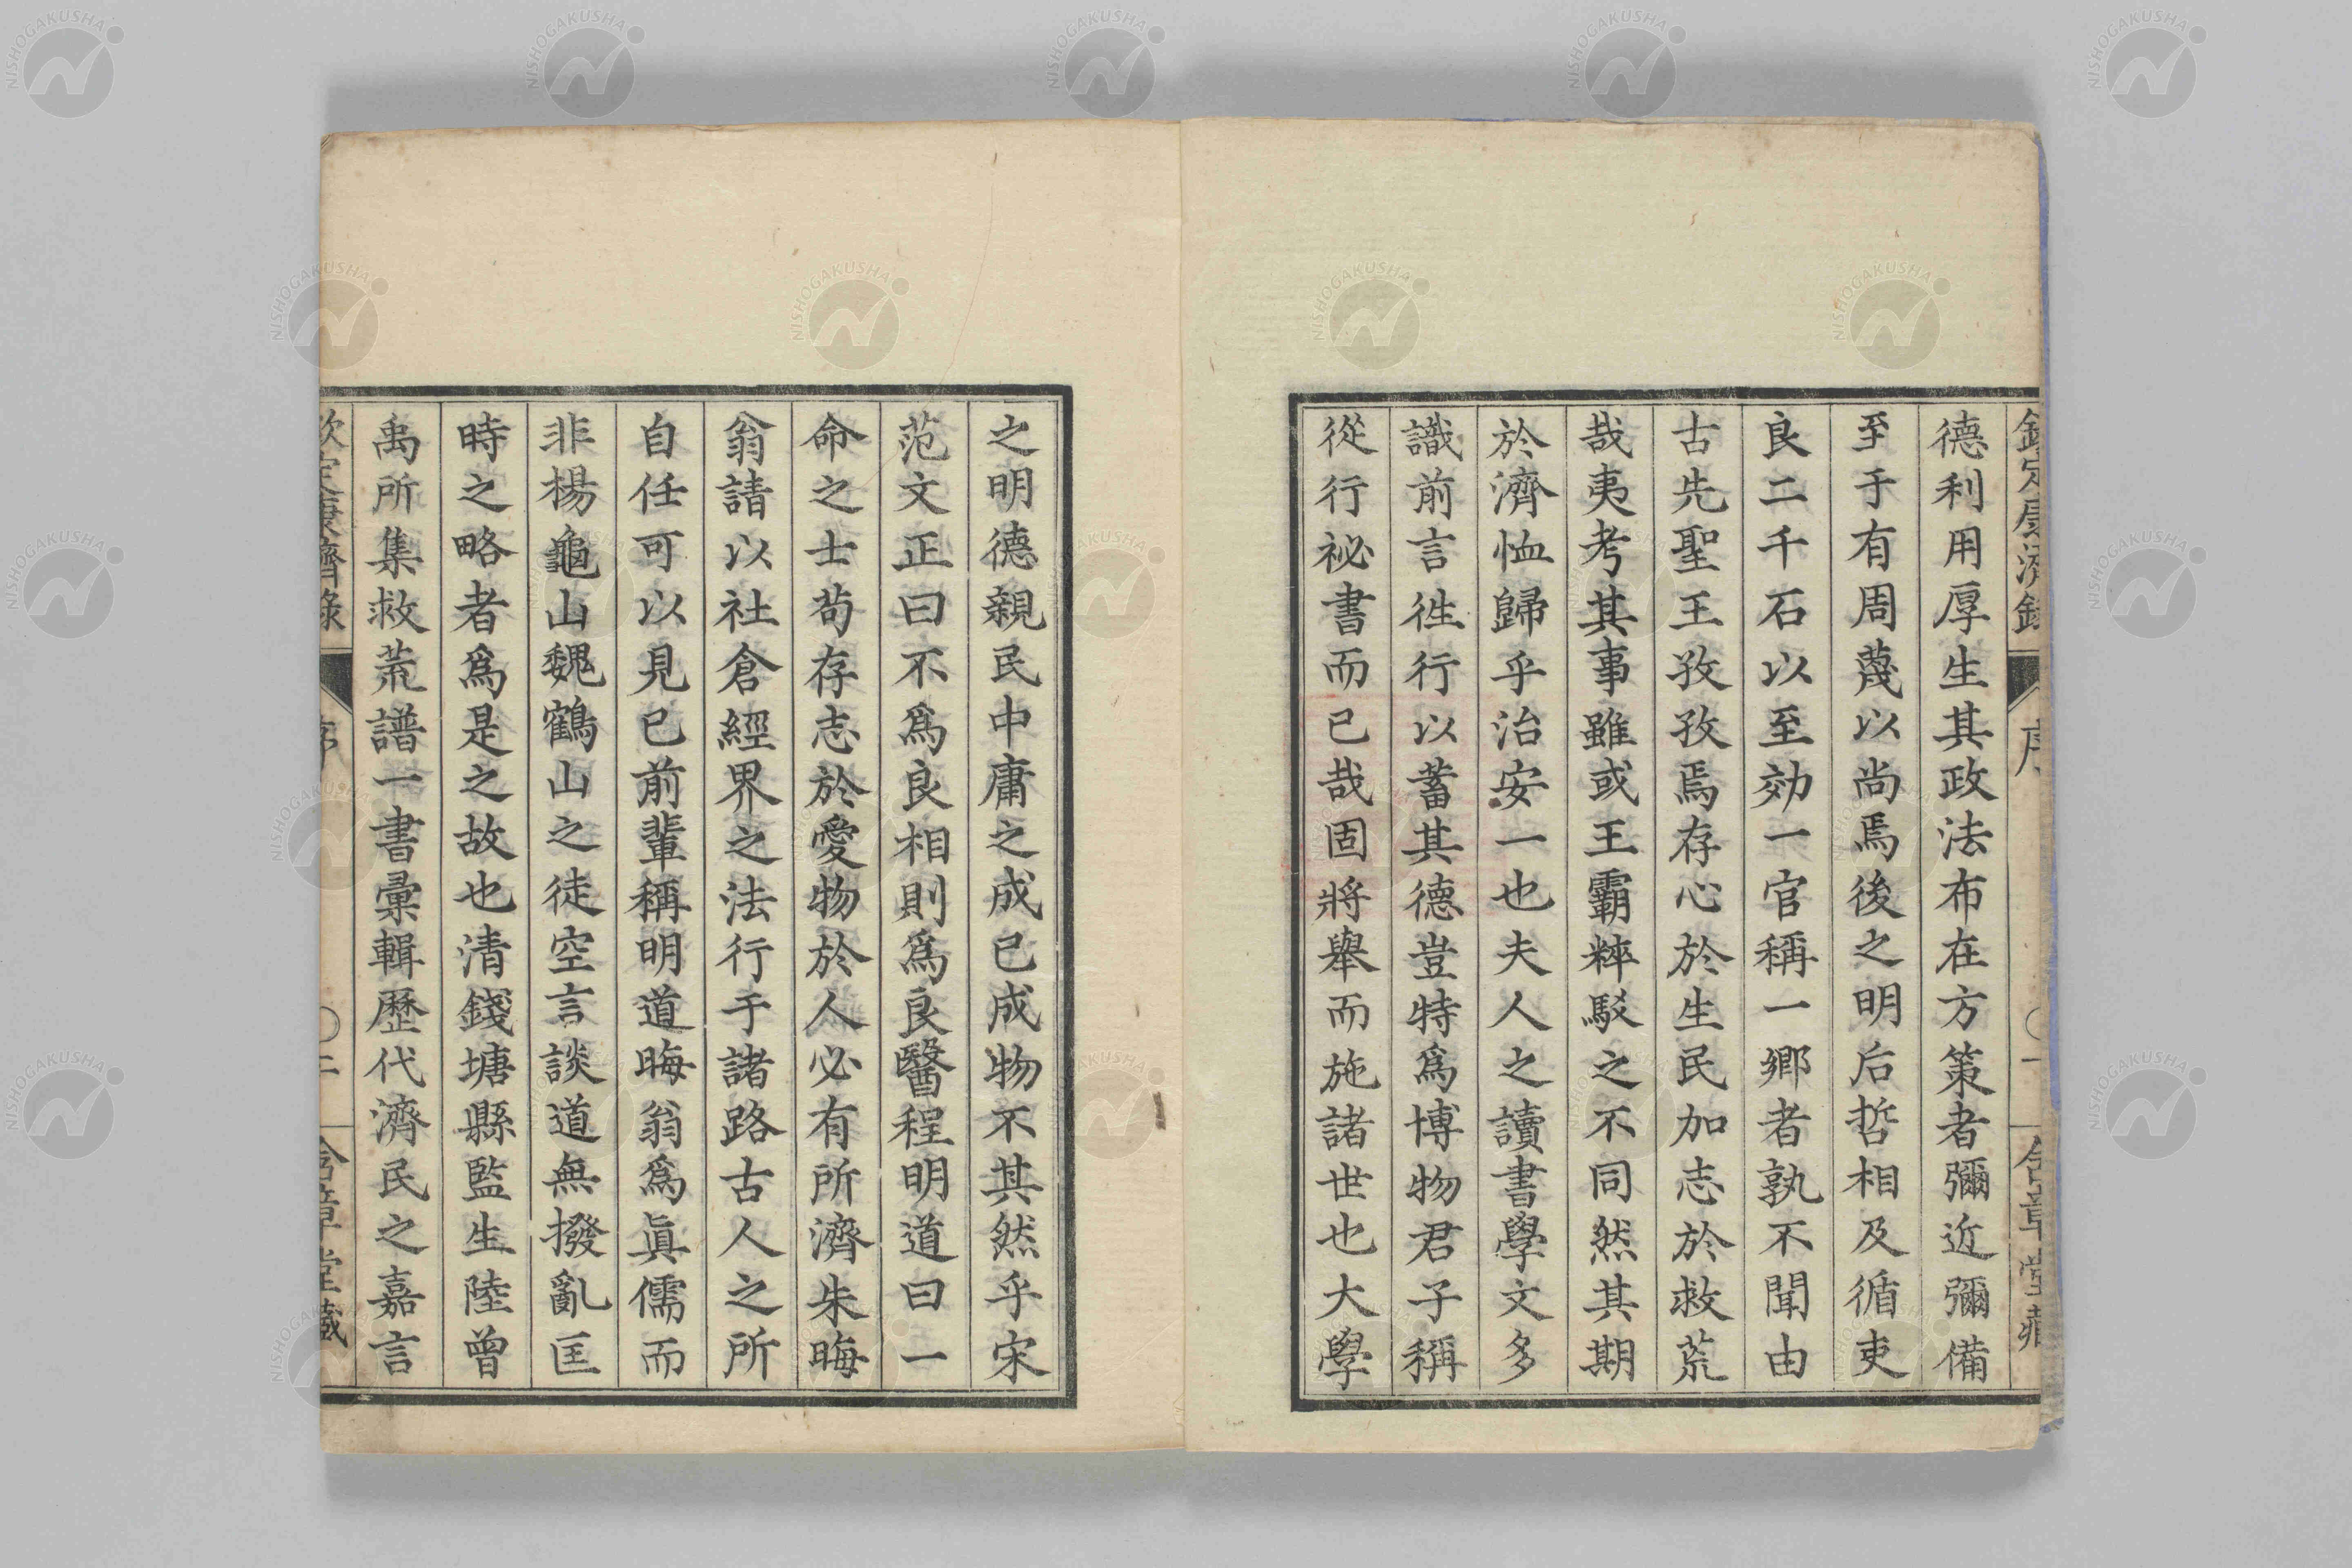 德利用厚生其政法布在方策者彌近彌備
至于有周蔑以尚焉後之明后哲相及循吏
良二千石以至効一官稱一鄉者孰不聞由
古先聖王孜孜焉存心於生民加志於救荒
哉夷考其事雖或王霸粹駁之不同然其期
於濟恤歸乎治安一也夫人之讀書學文多
識前言徃行以蓄其德豈特爲博物君子稱
從行祕書而已哉固將舉而施諸世也大學
之明德親民中庸之成已成物不其然乎宋
范文正曰不爲良相則爲良醫程明道曰一
命之士苟存志於愛物於人必有所濟朱晦
翁請以社倉經界之法行于諸路古人之所
自任可以見已前輩稱明道晦翁爲眞儒而
非楊龜山魏鶴山之徒空言談道無撥亂匡
時之略者爲是之故也清錢塘縣監生陸曾
禹所集救荒譜一書彙輯歷代濟民之嘉言
欽定康濟錄 序 〇二 含章堂藏
NISHOGAKUSHA